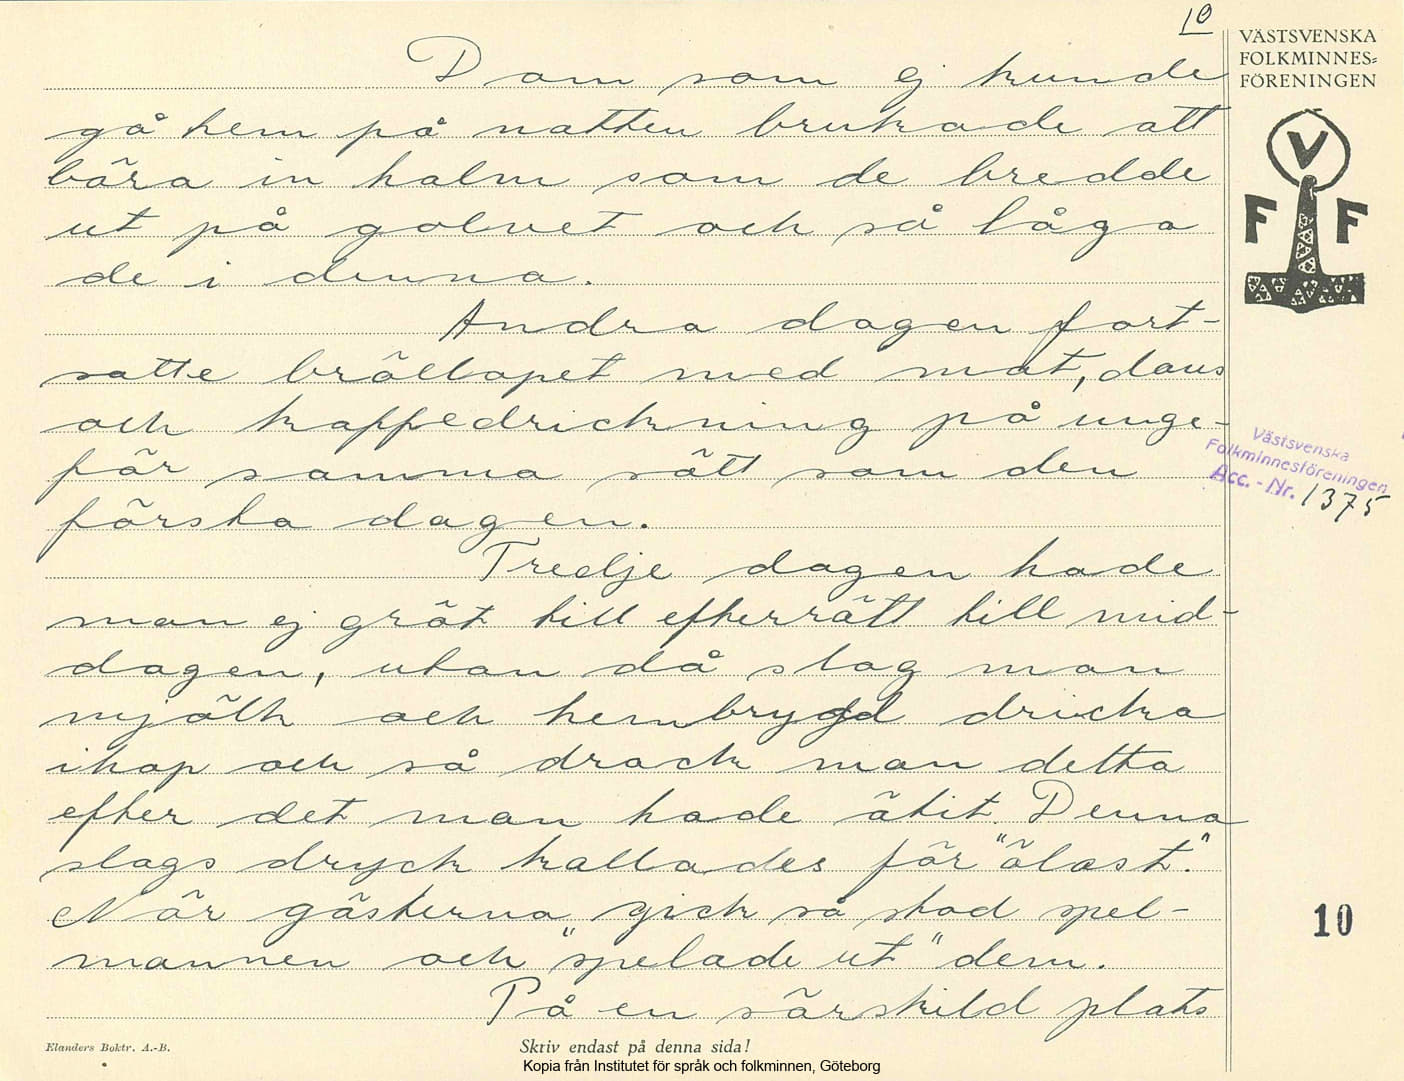 10
VÄSTSVENSKA
FOLKMINNES=
FÖRENINGEN
V
F F
Dom som ej kunde
gå hem på natten brukade att
bära in halm som de bredde
ut på golvet och så låga
de i denna.
Andra dagen fort-
satte bröllopet med mat, dans
och kaffedrickning på unge-
fär samma sätt som den
första dagen.
Tredje dagen hade
man ej gröt till efterrätt till mid-
dagen, utan då slag man
mjölk och hembrygd dricka
ihop och så drack man detta
efter det man hade ätit. Denna
slags dryck kallades för "ölast".
När gästerna gick så stod spel-
mannen och "spelade ut" dem.
På en särskild plats
Västsvenska
Folkminnesföreningen
Acc. - Nr. 1375
10
Elanders Boktr. A.-B.
Skriv endast på denna sida!
Kopia från Institutet för språk och folkminnen, Göteborg